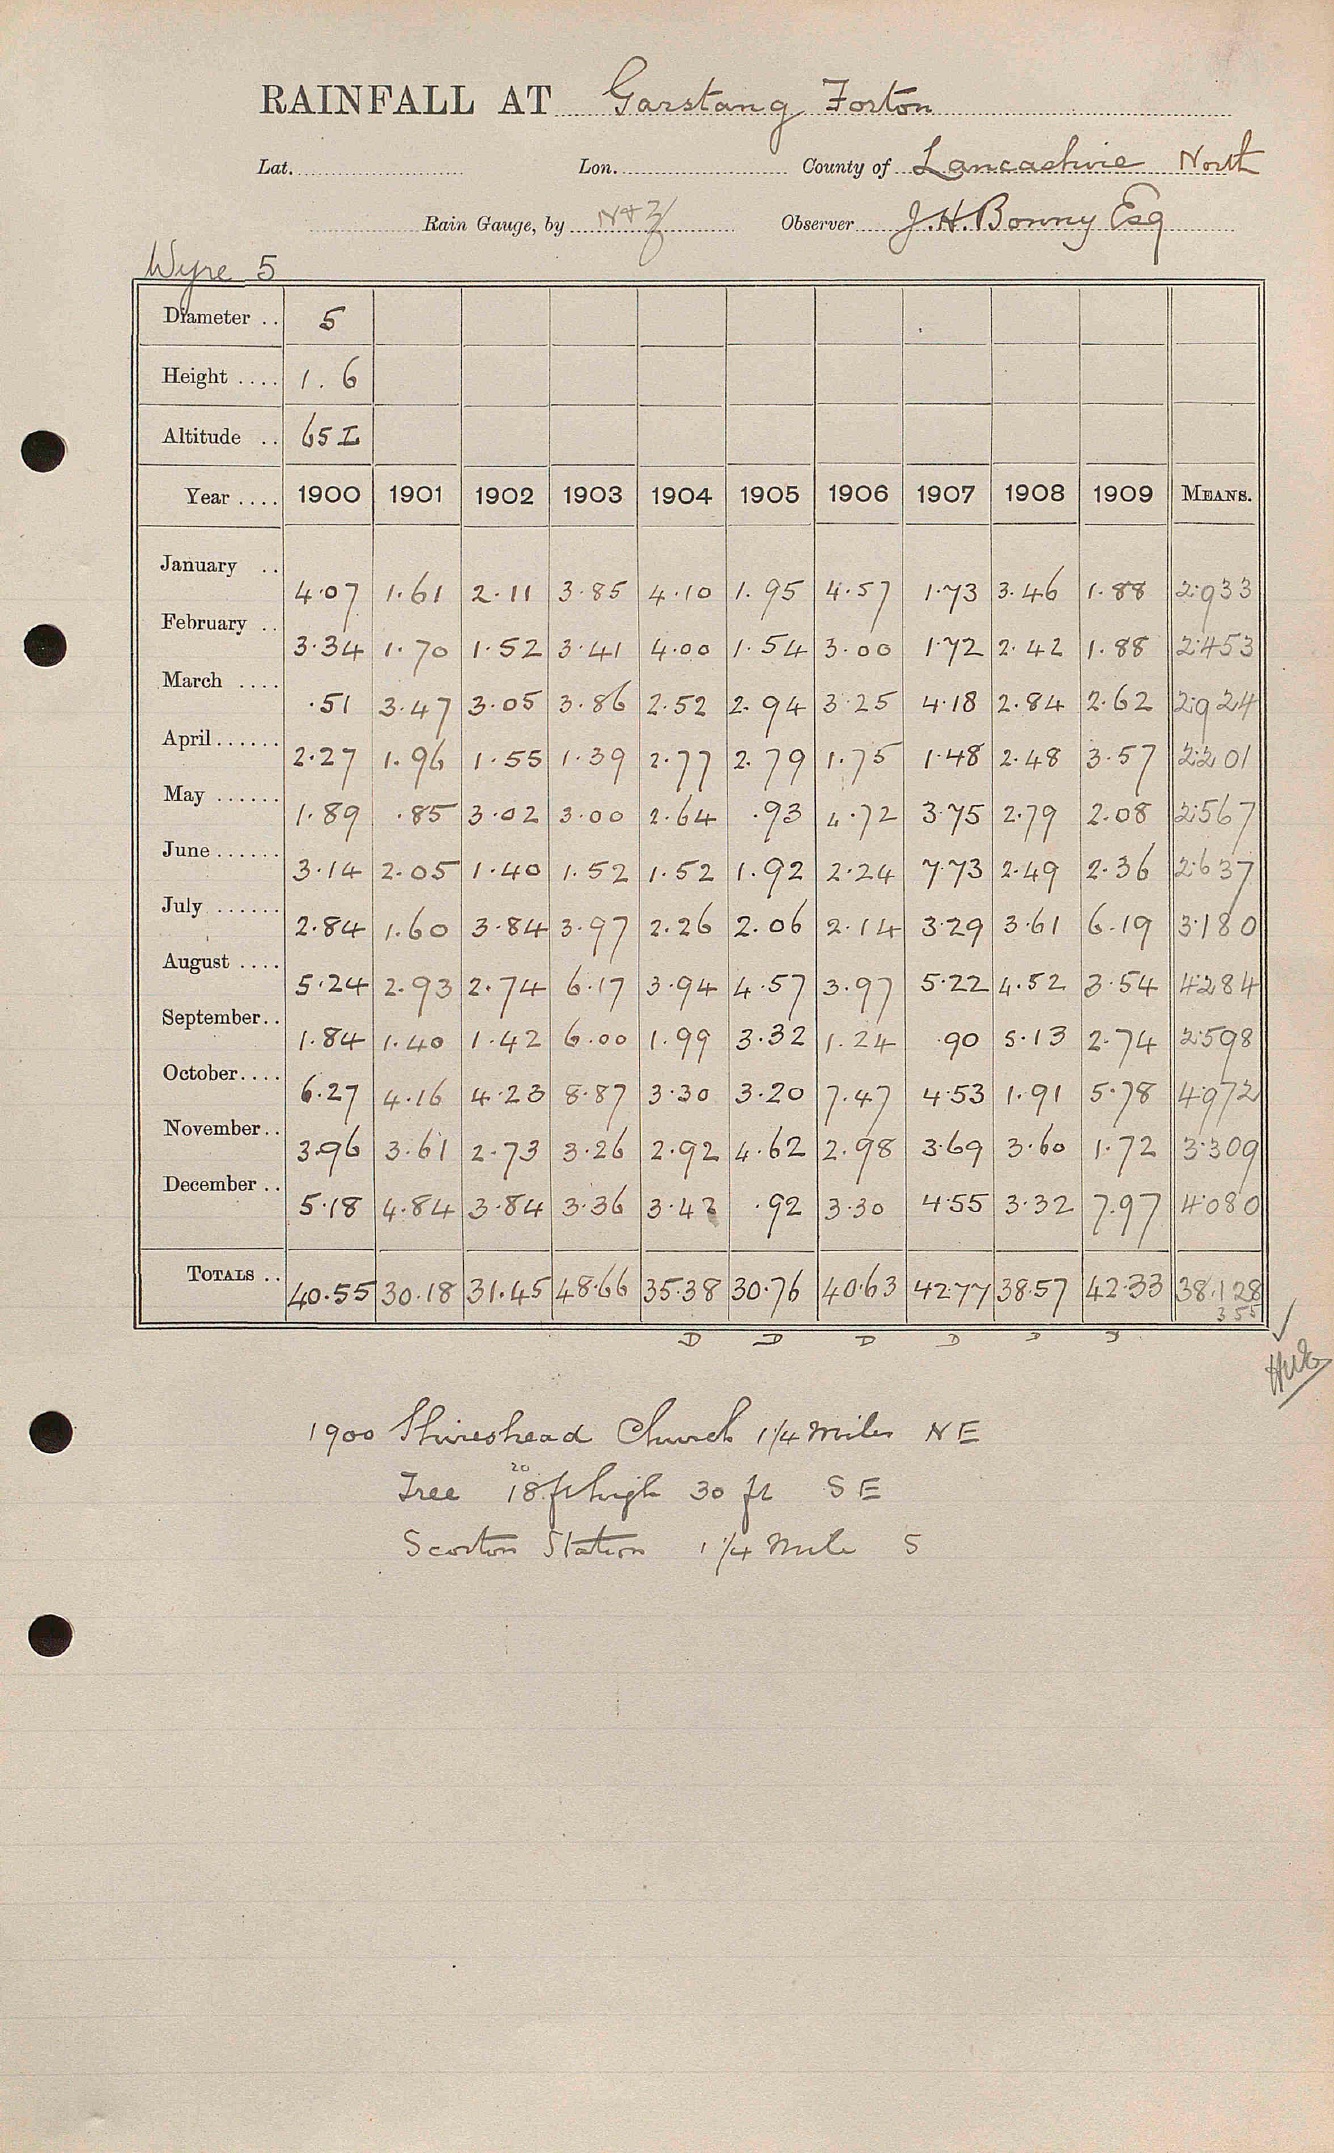 RAINFALL AT Garstang Forton
Lat. Lon. County of Lancashire North
Rain Gauge, by N+Z Observer J.H. Bonny Esq
Wyre 5
Diameter .. 5
Height .... 1.6
Altitude .. 65 I
Year .... 1900 1901 1902 1903 1904 1905 1906 1907 1908 1909 MEANS.
January .. 4.07 1.61 2.11 3.85 4.10 1.95 4.57 1.73 3.46 1.88 2.933
February .. 3.34 1.70 1.52 3.41 4.00 1.54 3.00 1.72 2.42 1.88 2.453
March .... .51 3.47 3.05 3.86 2.52 2.94 3.25 4.18 2.84 2.62 2.924
April...... 2.27 1.96 1.55 1.39 2.77 2.79 1.75 1.48 2.48 3.57 2.201
May ...... 1.89 .85 3.02 3.00 2.64 .93 4.72 3.75 2.79 2.08 2.567
June...... 3.14 2.05 1.40 1.52 1.52 1.92 2.24 7.73 2.49 2.36 2.637
July ...... 2.84 1.60 3.84 3.97 2.26 2.06 2.14 3.29 3.61 6.19 3.180
August .... 5.24 2.93 2.74 6.17 3.94 4.57 3.97 5.22 4.52 3.54 4.284
September.. 1.84 1.40 1.42 6.00 1.99 3.32 1.24 .90 5.13 2.74 2.598
October.... 6.27 4.16 4.23 8.87 3.30 3.20 7.47 4.53 1.91 5.78 4.972
November.. 3.96 3.61 2.73 3.26 2.92 4.62 2.98 3.69 3.60 1.72 3.309
December .. 5.18 4.84 3.84 3.36 3.42 .92 3.30 4.55 3.32 7.97 4.080
TOTALS .. 40.55 30.18 31.45 48.66 35.38 30.76 40.63 42.77 38.57 42.33 38.128
355
D D D D D D
1900 Shireshead Church 1 1/4 miles NE
20
Tree 18 ft high 30 ft SE
Scorton Station 1 1/4 Mile S